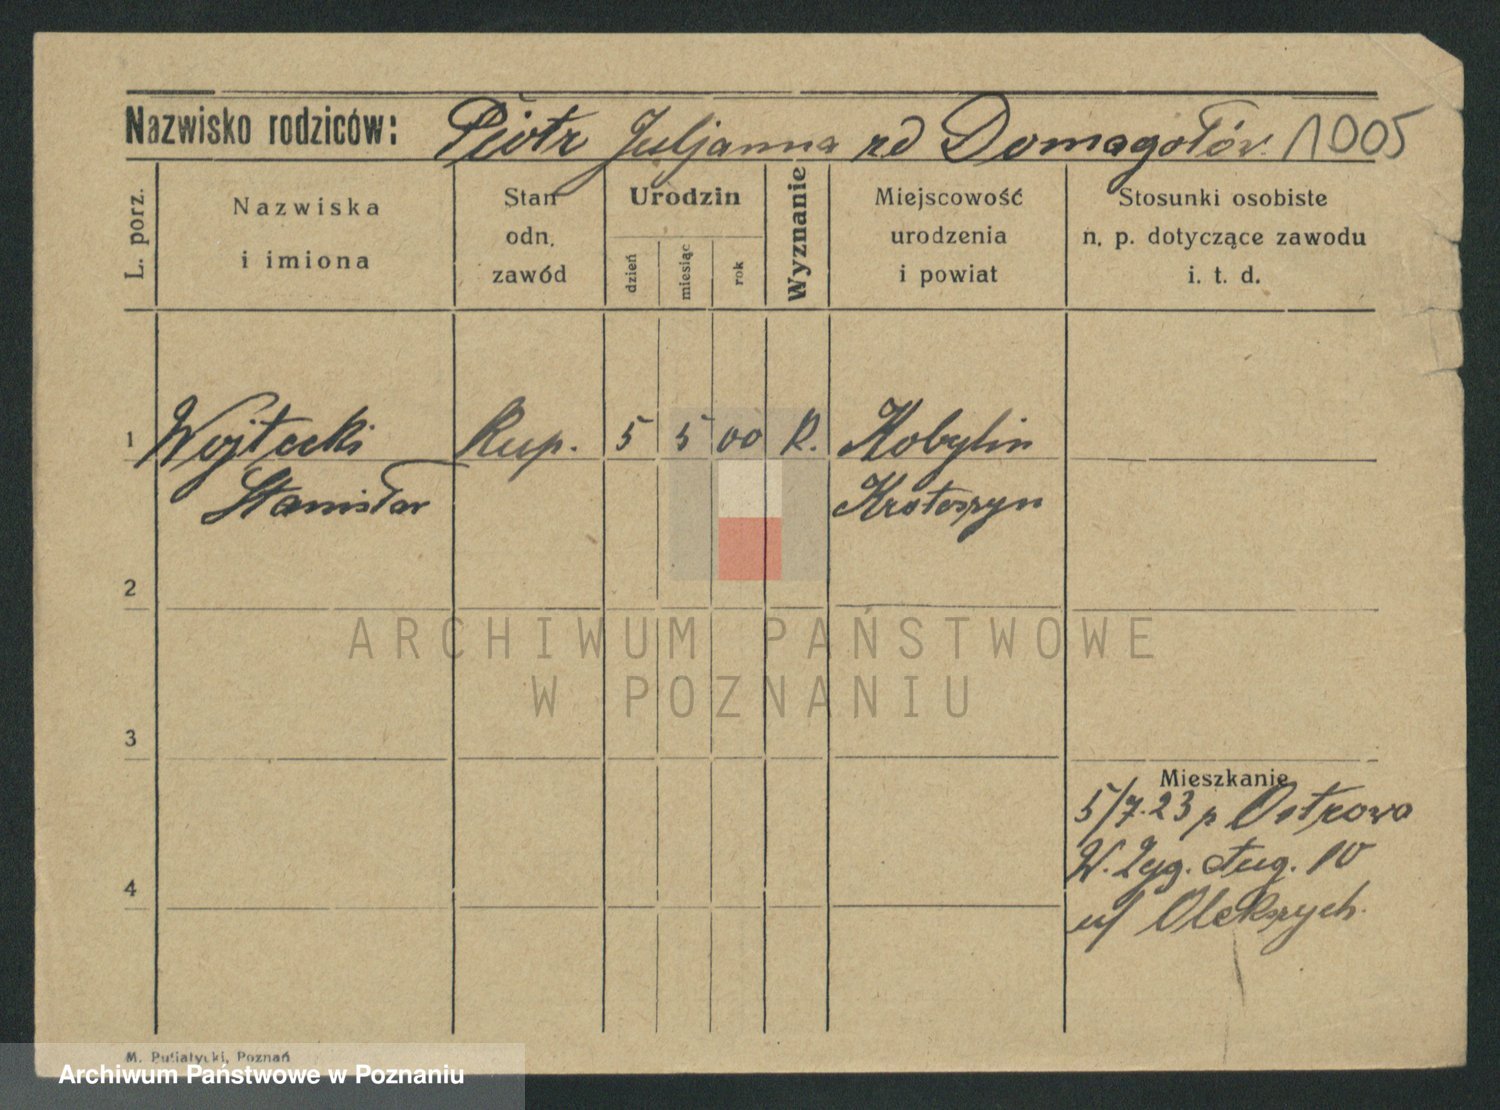 Nazwisko rodziców: Piotr Juljanna zd Domagałów. 1005
L. porz.
Nazwiska
i imiona
Stan
odn.
zawód
Urodzin
dzień
miesiąc
rok
Wyznanie
Miejscowość
urodzenia
i powiat
Stosunki osobiste
n. p. dotyczące zawodu
i. t. d.
1 Wojtecki Kup. 5 5 00 R. Kobylin
Stanisław Krotoszyn
2
ARCHIWUM PAŃSTWOWE
W POZNANIU
3
Mieszkanie
5/7.23 p Ostrowo
W. Zyg. Aug. 10
4
M. Putiatycki, Poznań
Archiwum Państwowe w Poznaniu